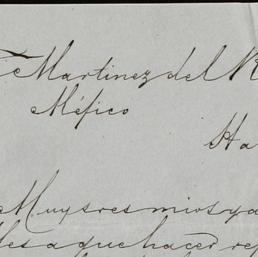 Martinez del R
Méfico
Ha
Muy sres mios y a
les a que hacer rep